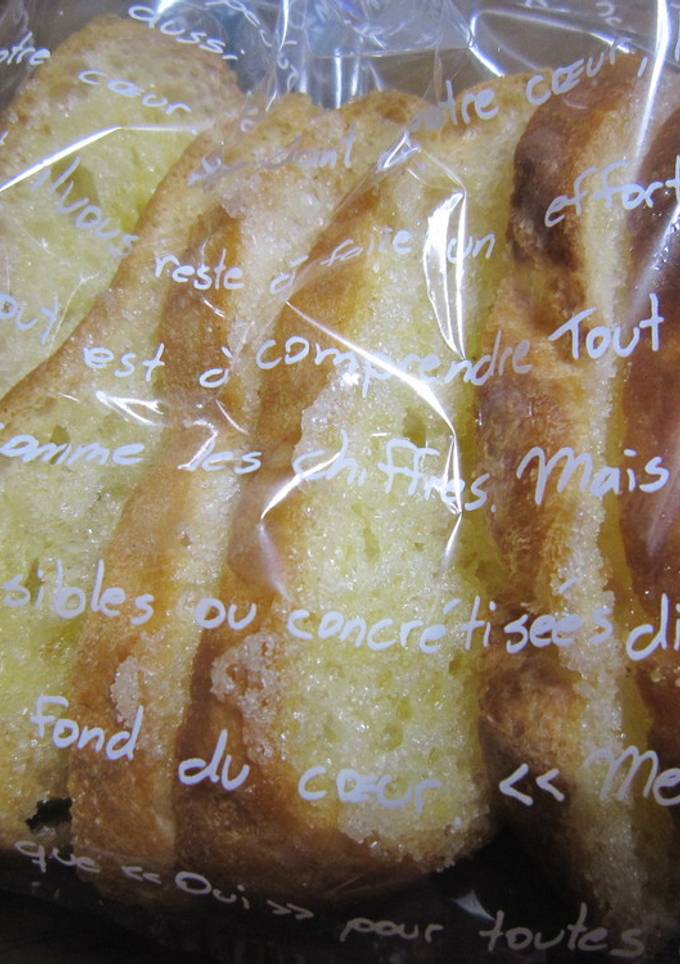 aussi
otre cœur
votre cœur,
vous reste à faire un effort
out est à comprendre Tout
omme les chiffres. Mais
sibles ou concrétiseés di
fond du cœur << Me
que << Oui >> pour toutes